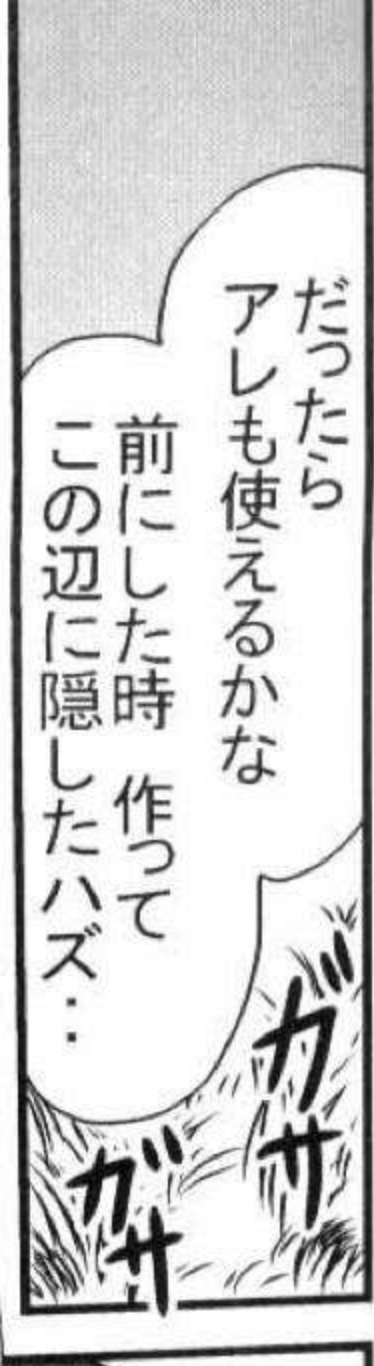 だったら
アレも使えるかな
前にした時　作って
この辺に隠したハズ‥
ガサ
ガサ